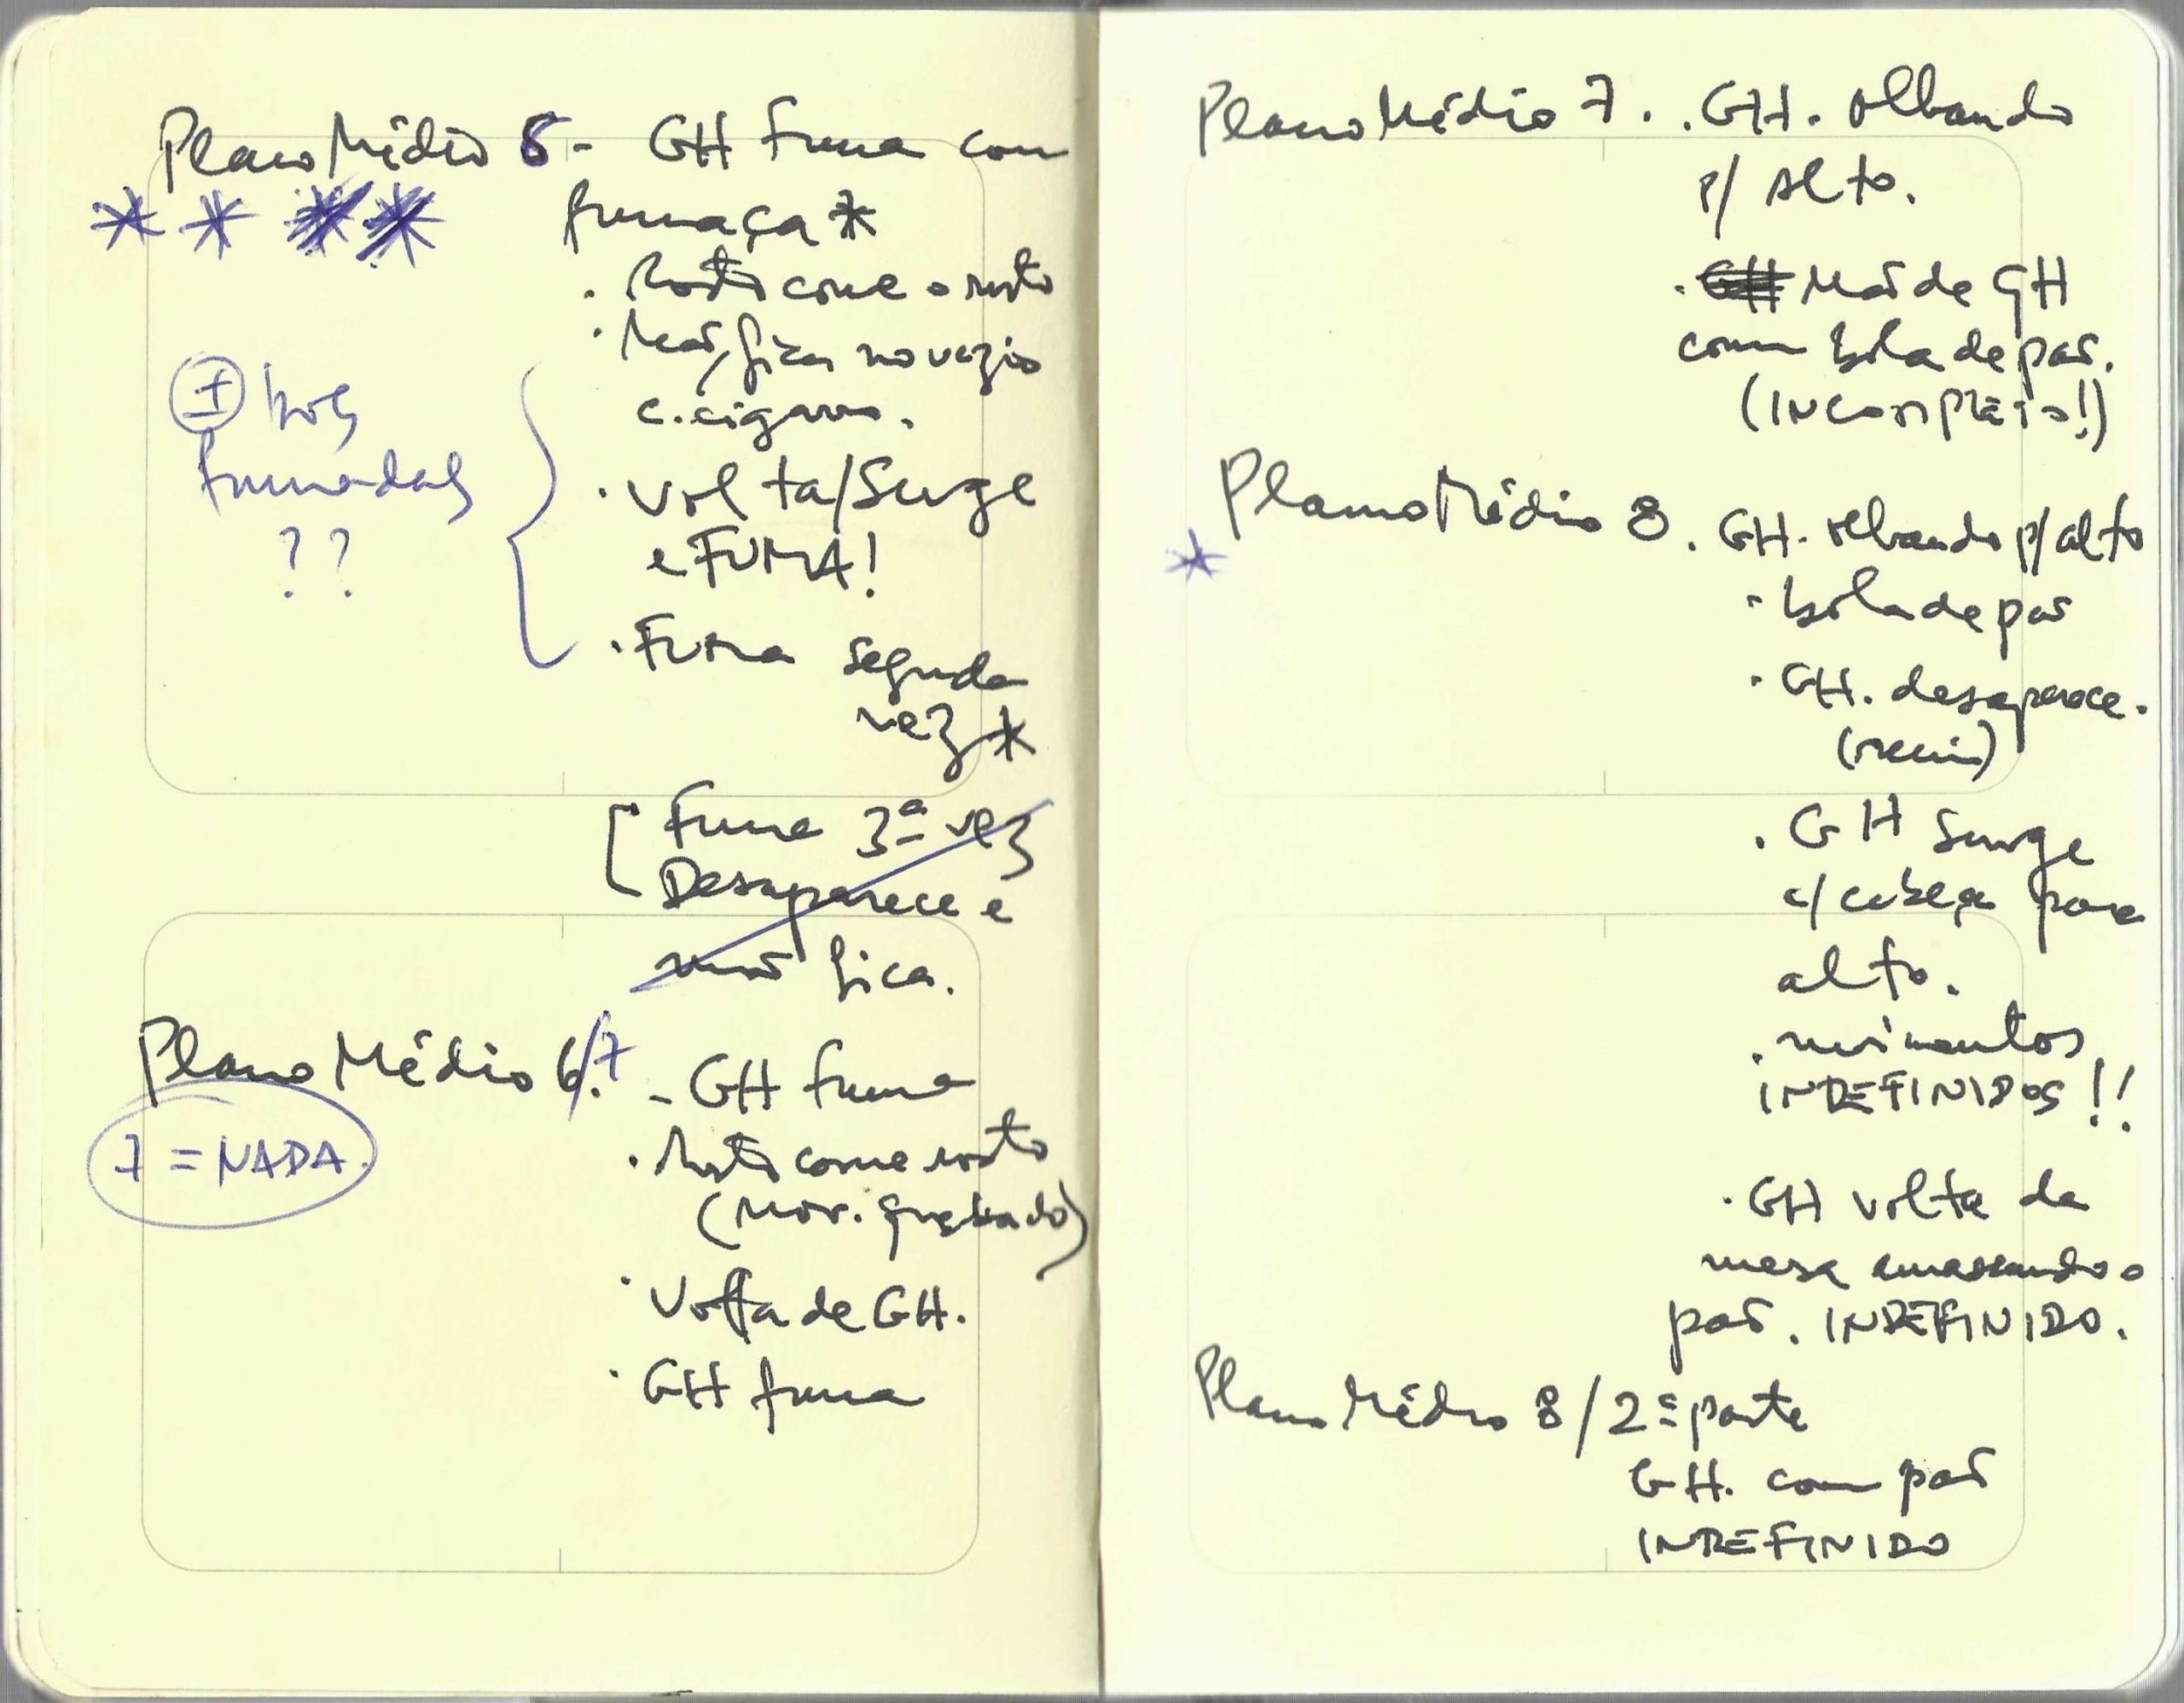 Plano Médio 5 - GH Fuma com
fumaça *
* * * *
. Rosto come o rosto
. Mão fica no vazio
c. cigarro.
± boas
fumadas
??
. Volta/Surge
e FUMA!
. Fuma segunda
vez *
[ Fuma 3ª vez
Desaparece e
mão fica.
Plano Médio 6/7. - GH fuma
7 = NADA.
. Rosto come rosto
(Mov. quebrado)
. Volta de GH.
. GH fuma
Plano Médio 7. . GH. olhando
p/ alto.
. GH Mão de GH
com bola de pão.
(INCOMPLETO!)
Plano Médio 8. GH. olhando p/ alto
*
. bola de pão
. GH. desaparece.
. GH surge
c/ cabeça para
alto.
. movimentos
INDEFINIDOS!!
. GH volta da
mesa amassando o
pão. INDEFINIDO.
Plano Médio 8/2ª parte
GH. com pão
INDEFINIDO